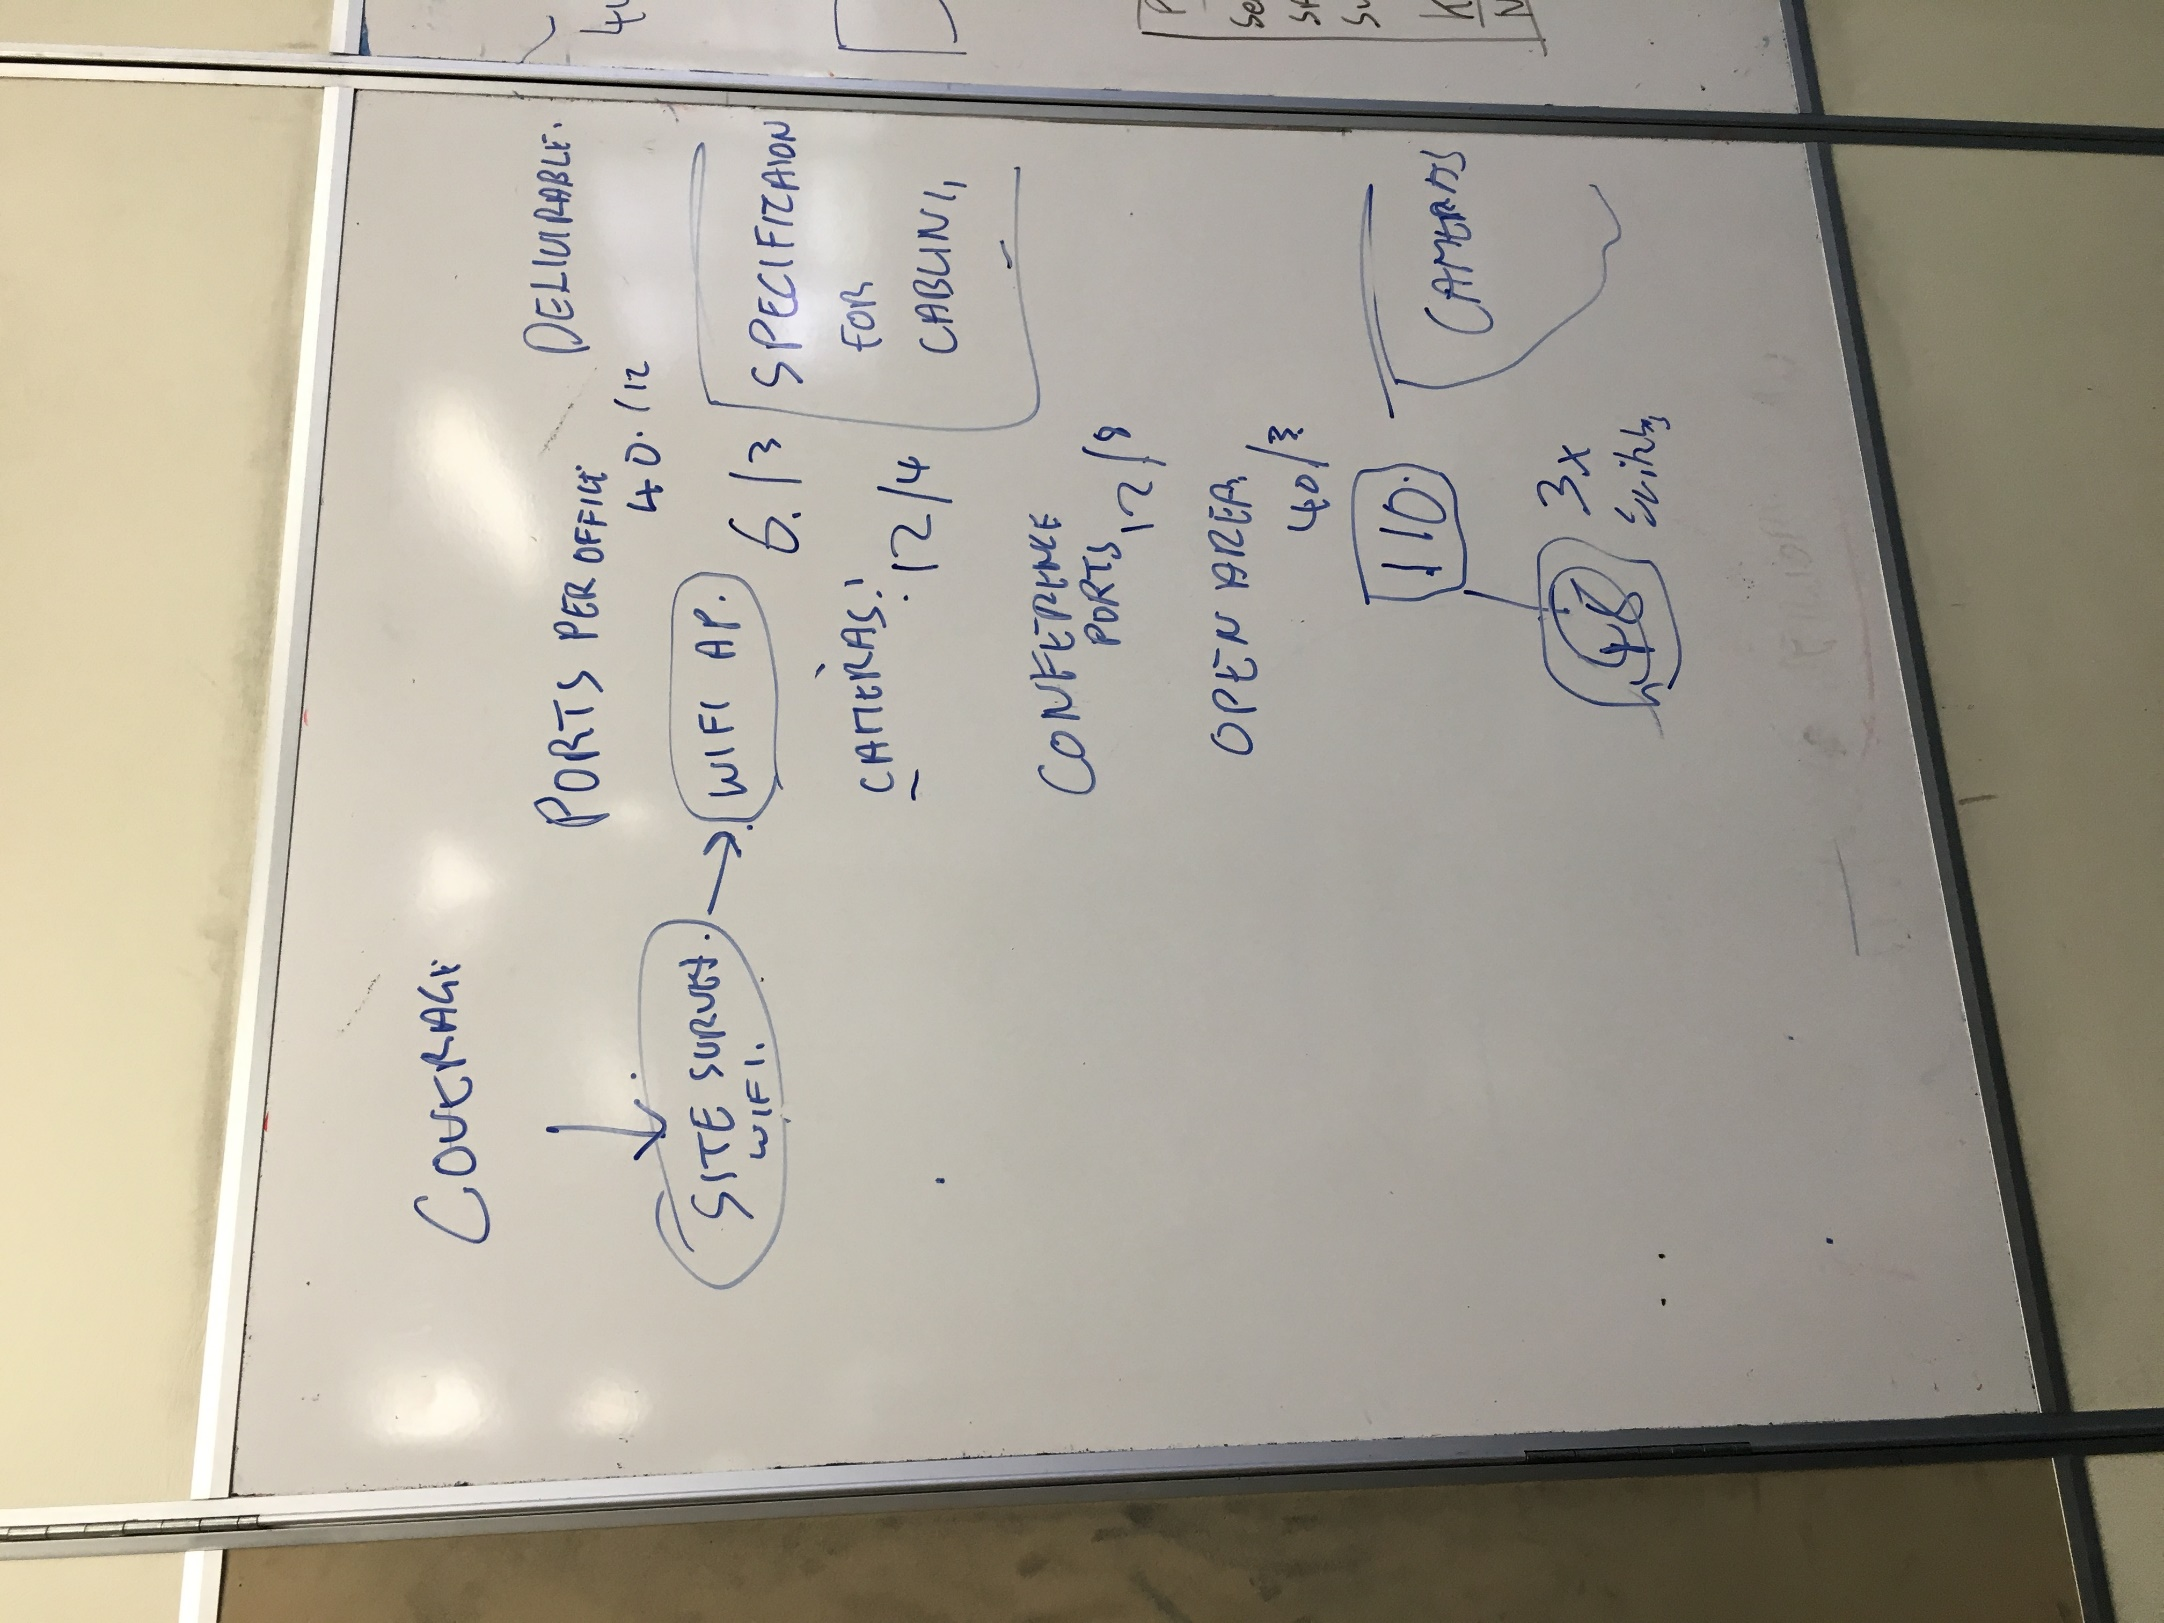 COVERAGE
SITE SURVEY.
WIFI.
PORTS PER OFFICE
40.12
WIFI AP. 6./3
CAMERAS!
12/4
CONFERENCE
PORTS 12/8
OPEN AREA
40/3
110.
48 3x
DELIURABLE.
SPECIFIZAION
FOR
CABLING
CAMERAS